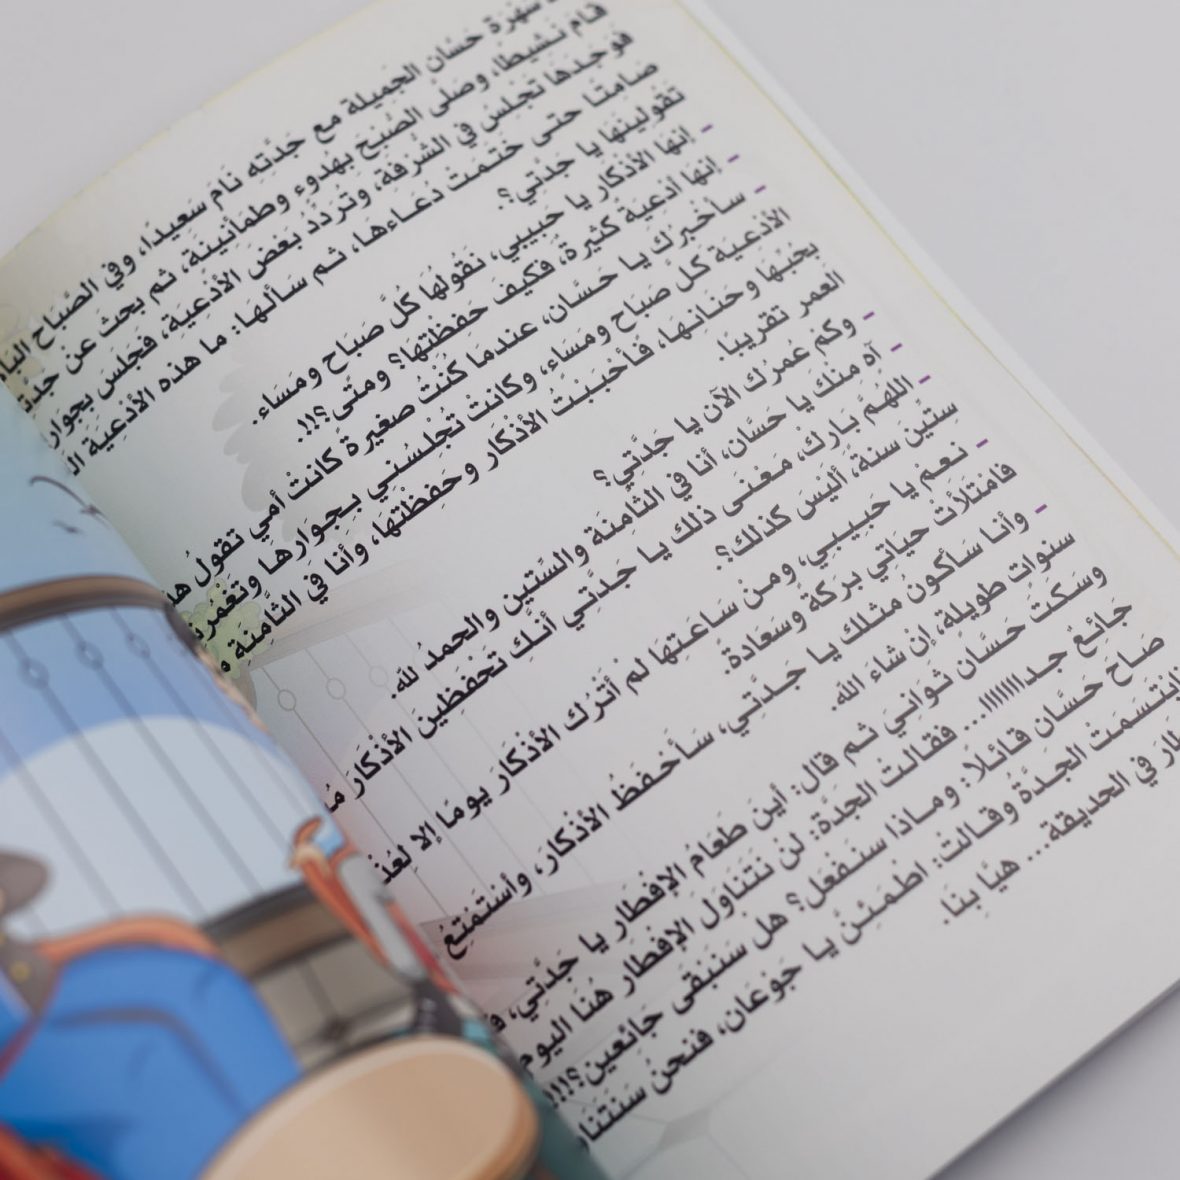 سَهْرَة حَسَّان الجَمِيلَة مع جَدَّتِه نَامَ سَعِيدًا، وفي الصَّبَاحِ
قَامَ نَشِيطًا، وصَلَّى الصُّبْحَ بِهُدوءٍ وطمَأْنينَة، ثم بحثَ عن
فَوَجَدَهَا تَجْلِسُ في الشُّرْفَةِ، وتُرَدِّدُ بَعْضَ الأَدْعِيةِ، فَجَلَسَ بِجِوارِ
صَامِتًا حتى خَتَمَتْ دُعَاءَهَا، ثم سَأَلَهَا: ما هذه الأَدْعِيَة
تَقُولينَهَا يا جدَّتي؟
- إنَّهَا الأَذْكَار يا حَبيبي، نَقُولُهَا كُلَّ صَبَاحٍ ومَسَاء.
- إنَّهَا أَدْعِيَةٌ كَثيرةٌ، فَكيفَ حَفِظْتِهَا؟ ومَتَى؟!!.
- سأُخْبِرُكَ يا حَسَّان، عِنْدمَا كُنْتُ صَغيرةً كَانتْ أُمِّي تَقولُ
الأَدْعِية كلَّ صَبَاحٍ ومَسَاءٍ، وكانتْ تُجْلِسُنِي بِجِوَارِهَا وتَغْمُرُنِي
بِحُبِّهَا وحَنَانِهَا، فَأَحْبَبْتُ الأَذْكَار وحَفِظْتُهَا، وأَنا فِي الثَّامِنَة
العمرِ تَقْرِيبًا.
- وكم عُمرُك الآنَ يا جَدَّتِي؟
- آهٍ مِنكَ يا حَسَّان، أنا في الثَّامِنَة والسِّتِّين والحمدُ لله.
- اللهُمَّ بَارِك، مَعْنى ذلك يا جدَّتِي أَنَّكِ تَحْفَظِينَ الأَذْكَارَ
سِتِّينَ سنة، أَلَيْسَ كَذلك؟
- نَعمْ يا حَبِيبِي، ومِنْ سَاعَتِهَا لَمْ أَتْرُك الأَذْكَارَ يومًا إلا
فَامْتَلَأَتْ حَياتِي بَرَكَةً وسَعَادةً.
- وأَنا سَأَكونُ مثلك يا جَدَّتِي، سَأَحْفَظُ الأَذْكَارَ، وأَسْتَمْتِعُ
سنوات طَويلة، إن شَاءَ الله.
وسَكَتَ حَسَّان ثَوانيَ ثم قال: أينَ طَعَامُ الإفْطَارِ يا جَدَّتِي،
جَائِعٌ جدااااااااا... فَقَالتْ الجَدَّة: لن نَتَنَاوَلَ الإفْطَارَ هُنَا اليوم
صَاحَ حَسَّان قَائلا: ومَاذا سنَفْعَل؟ هل سَنَبْقَى جَائِعين؟!!!
ابْتَسَمَتْ الجدَّةُ وقَالتْ: اطْمَئِنْ يا جَوْعَان، فَنحنُ سَنَتَنَا
في الحديقة... هيَّا بِنَا.